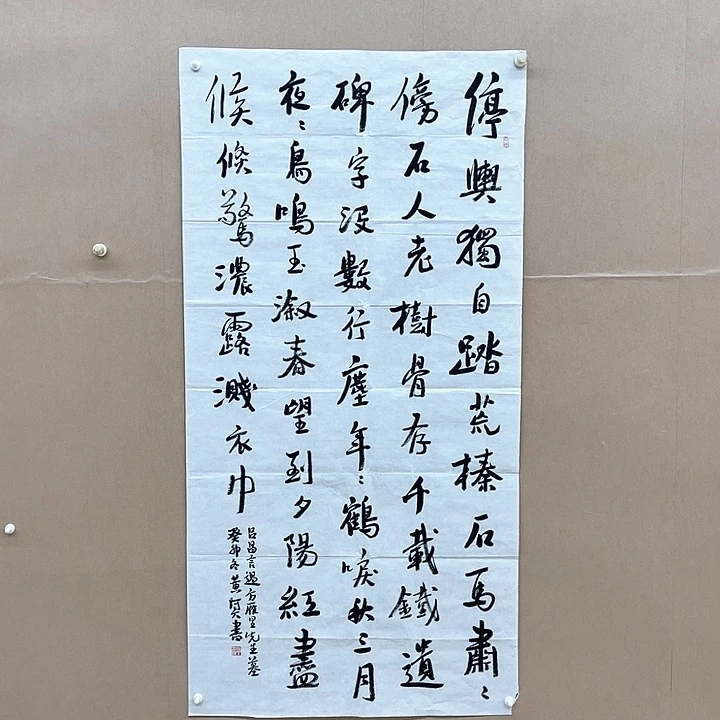 停輿獨自踏荒榛石馬肅〻
傍石人老樹骨存千載鐵遺
碑字沒數行塵年〻鶴唳秋三月
夜〻鳥鳴玉漵春望到夕陽紅盡
候倏驚濃露濺衣巾
呂昌言過方雁里先生墓
癸卯冬黄書